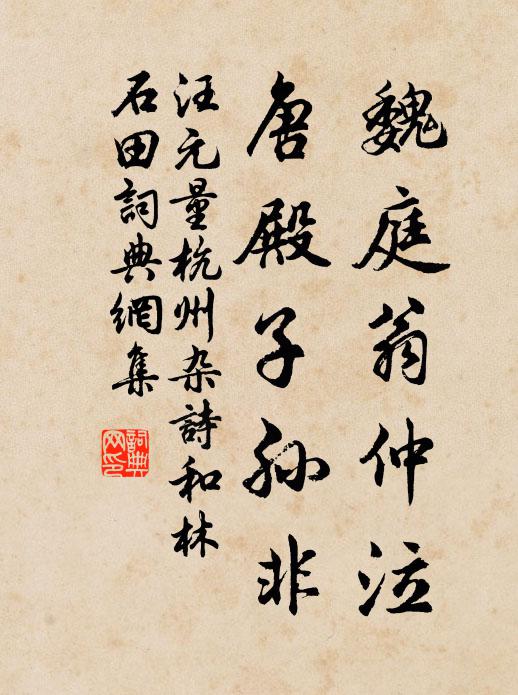 魏庭翁仲泣
唐殿子孫非
汪元量杭州杂詩和林
石田詞典網集
詞典
网印